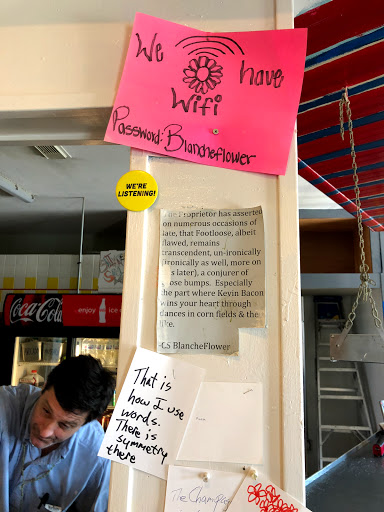 We
have
Wifi
Password: Blancheflower
WE'RE
LISTENING!
The Proprietor has asserted
on numerous occasions of
late, that Footloose, albeit
flawed, remains
transcendent, un-ironically
(ironically as well, more on
this later), a conjurer of
goose bumps. Especially
the part where Kevin Bacon
wins your heart through
dances in corn fields & the
like.
-CS BlancheFlower
Coca-Cola
enjoy
ice
That is
how I use
words.
There is
symmetry
there
The Champions